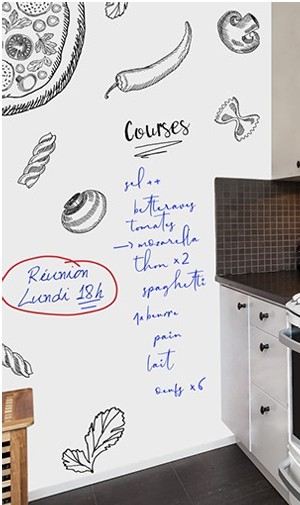 Courses
sel ++
betteraves
tomates
→ mozarella
thon x2
spaghetti
1x beurre
pain
lait
oeufs x6
Réunion
Lundi 18h